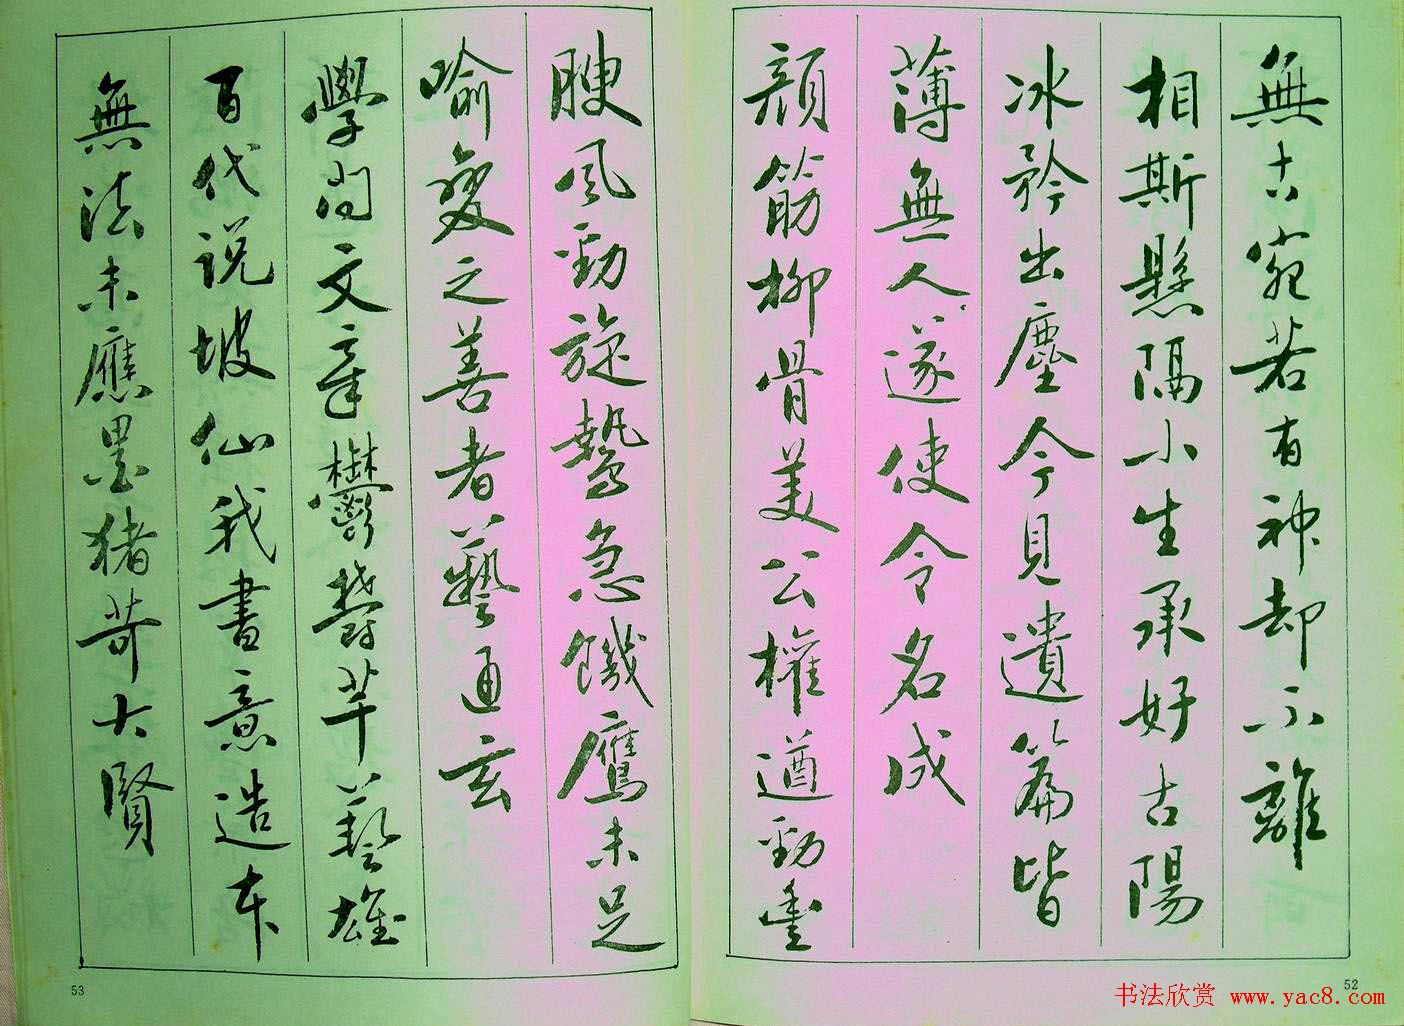 無古宛若有神却不離
相斯懸隔小生承好古陽
冰矜出塵今見遺篇皆
薄無人遂使令名成
顔筋柳骨美公權遒勁豐
腴風勁旋鷙急饑鷹未足
喻變之善者藝通玄
學問文章鬱芊藝雄
百代説坡仙我書意造本
無法未應墨猪苛大賢
53
52
书法欣赏 www.yac8.com